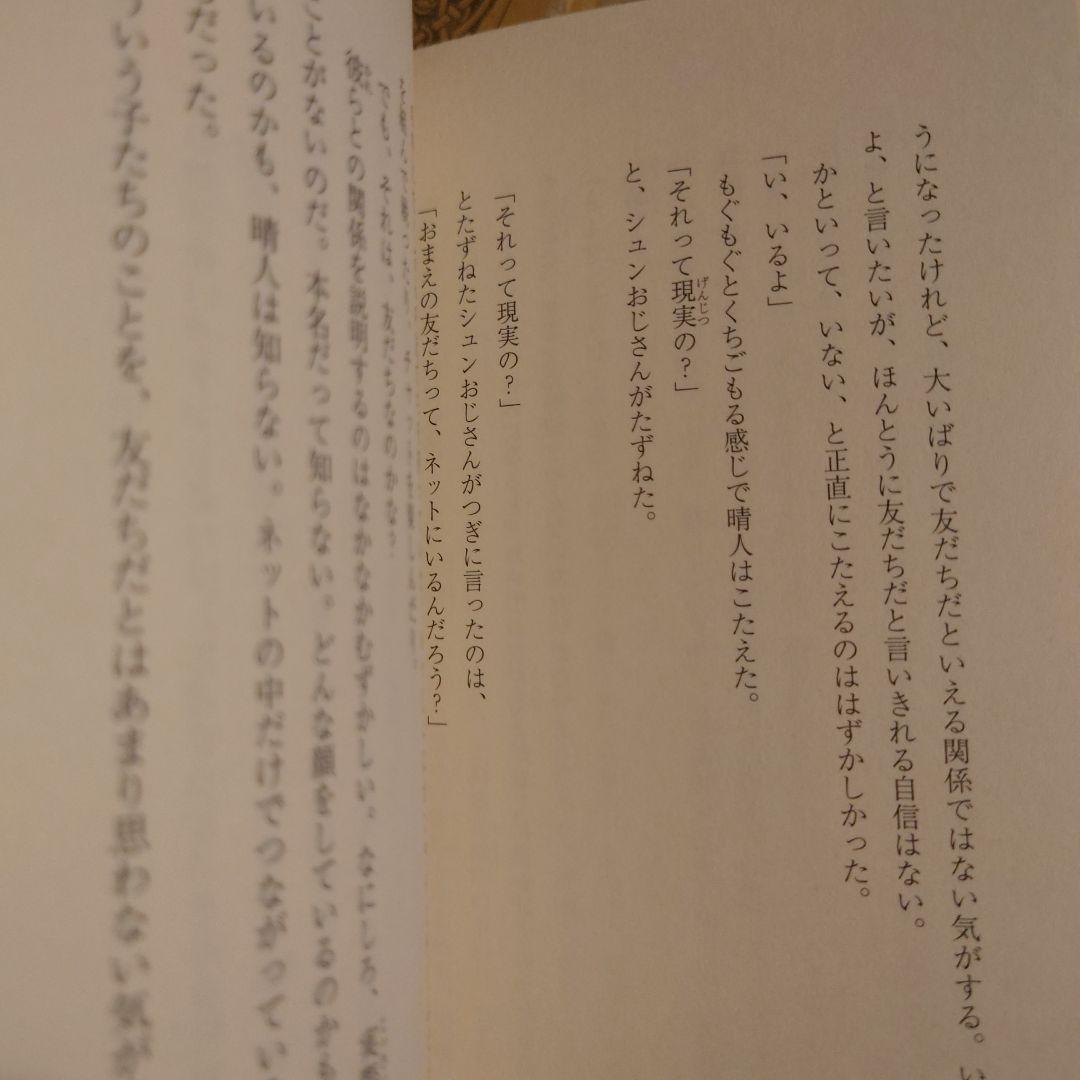 うになったけれど、大いばりで友だちだといえる関係ではない気がする。い
よ、と言いたいが、ほんとうに友だちだと言いきれる自信はない。
かといって、いない、と正直にこたえるのははずかしかった。
「い、いるよ」
もぐもぐとくちごもる感じで晴人はこたえた。
「それって現実の？」
げんじつ
と、シュンおじさんがたずねた。
「それって現実の？」
とたずねたシュンおじさんがつぎに言ったのは、
「おまえの友だちって、ネットにいるんだろう？」
でも、それは、友だちなのかな？
彼らとの関係を説明するのはなかなかむずかしい。なにしろ、
ことがないのだ。本名だって知らない。どんな顔をしているのかも
いるのかも、晴人は知らない。ネットの中だけでつながってい
だった。
いう子たちのことを、友だちだとはあまり思わない気が